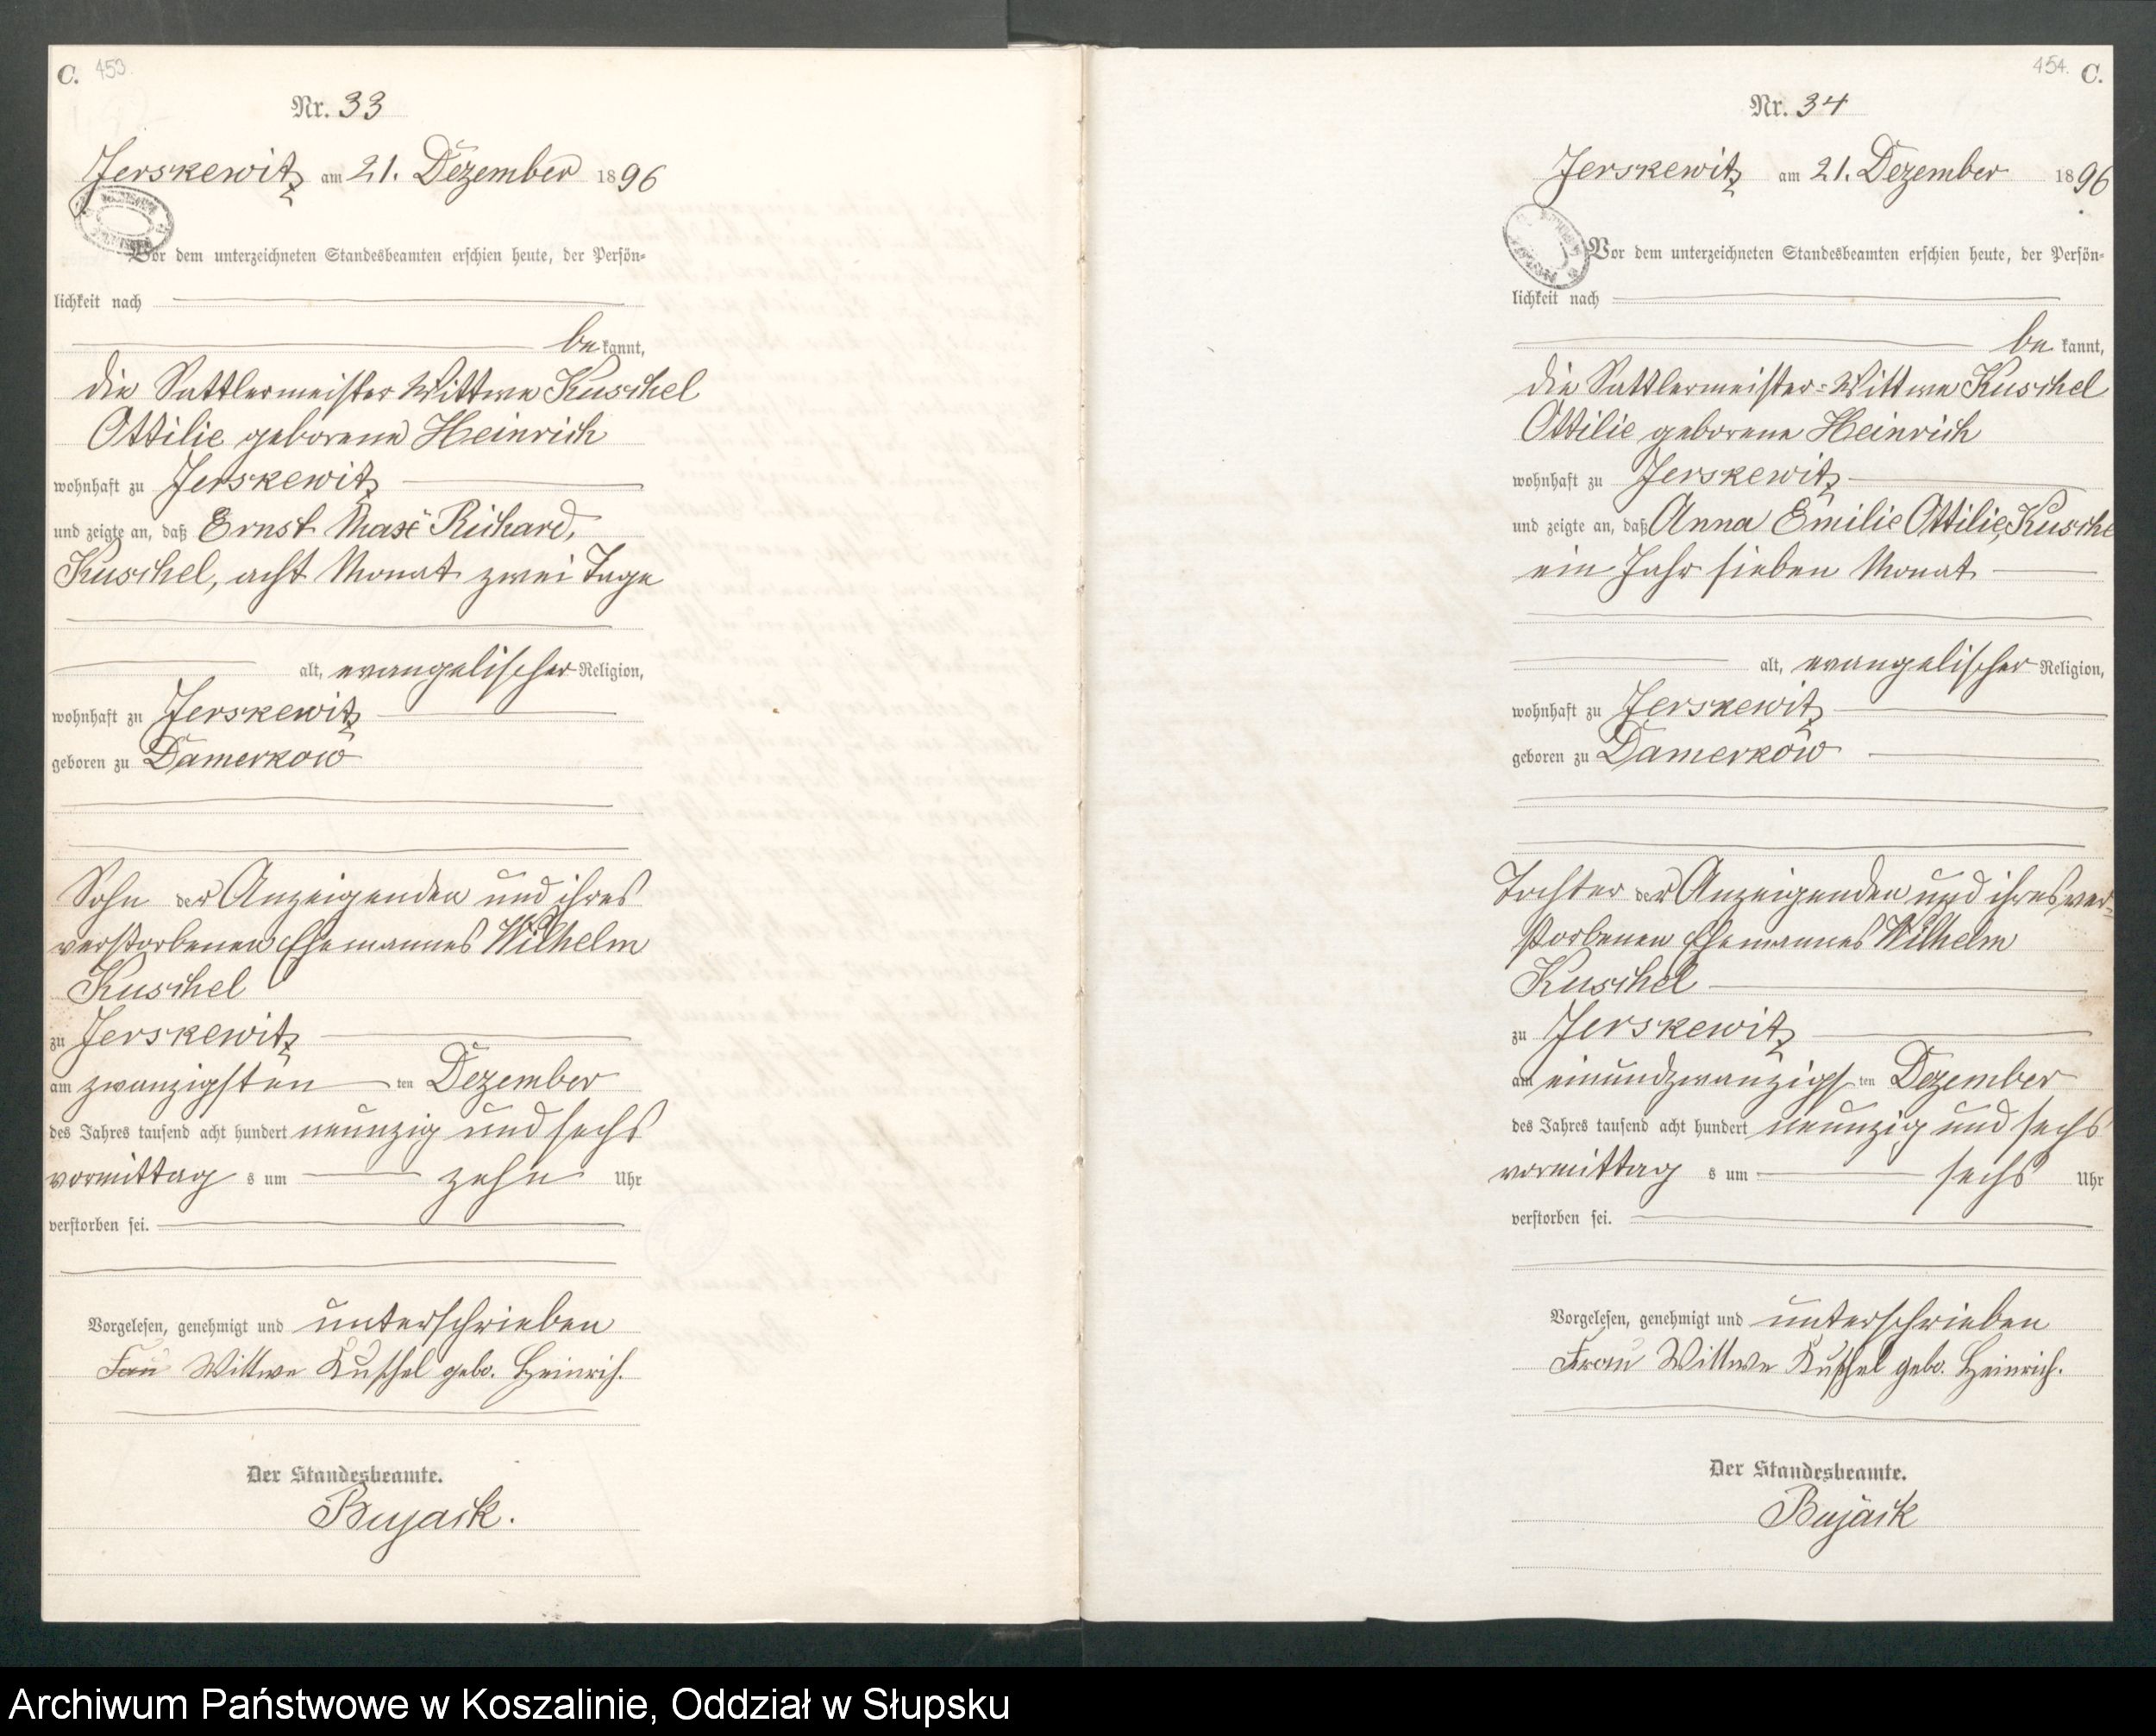 C. 453.
Nr. 33
Jerskewitz am 21. Dezember 1896
Vor dem unterzeichneten Standesbeamten erschien heute, der Persön-
lichkeit nach
be kannt,
die Sattlermeister Wittwe Kuschel
Ottilie geborene Heinrich
wohnhaft zu Jerskewitz
und zeigte an, daß Ernst Max Richard,
Kuschel, acht Monat zwei Tage
alt, evangelischer Religion,
wohnhaft zu Jerskewitz
geboren zu Damerkow
Sohn der Anzeigenden und ihres
verstorbenen Ehemannes Wilhelm
Kuschel
zu Jerskewitz
am zwanzigsten ten Dezember
des Jahres tausend acht hundert neunzig und sechs
vormittag s um zehn Uhr
verstorben sei.
Vorgelesen, genehmigt und unterschrieben
Frau Wittwe Kuschel geb. Heinrich.
Der Standesbeamte.
Bujack.
454. C.
Nr. 34
Jerskewitz am 21. Dezember 1896
Vor dem unterzeichneten Standesbeamten erschien heute, der Persön-
lichkeit nach
be kannt,
die Sattlermeister-Wittwe Kuschel
Ottilie geborene Heinrich
wohnhaft zu Jerskewitz
und zeigte an, daß Anna Emilie Ottilie, Kuschel
ein Jahr sieben Monat
alt, evangelischer Religion,
wohnhaft zu Jerskewitz
geboren zu Damerkow
Tochter der Anzeigenden und ihres ver-
storbenen Ehemannes Wilhelm
Kuschel
zu Jerskewitz
am einundzwanzigs ten Dezember
des Jahres tausend acht hundert neunzig und sechs
vormittag s um sechs Uhr
verstorben sei.
Vorgelesen, genehmigt und unterschrieben
Frau Wittwe Kuschel geb. Heinrich.
Der Standesbeamte.
Bujack
Archiwum Państwowe w Koszalinie, Oddział w Słupsku